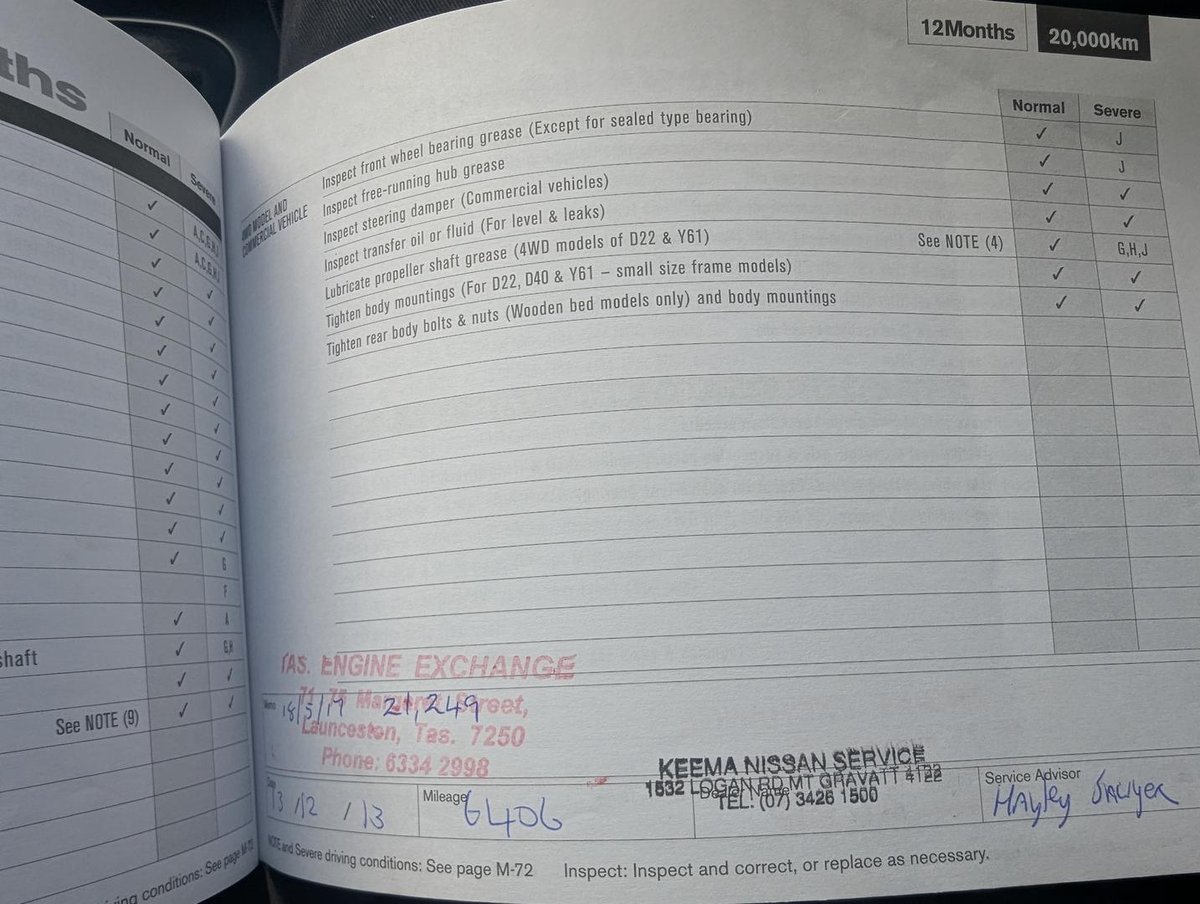 ths
Normal
Severe
A,C,G,H,J
A,C,G,H,J
G
F
A
G,H
shaft
See NOTE (9)
ing conditions: See page M-72
12Months
20,000km
Normal
Severe
4WD MODEL AND
COMMERCIAL VEHICLE
Inspect front wheel bearing grease (Except for sealed type bearing) ✓ J
Inspect free-running hub grease ✓ J
Inspect steering damper (Commercial vehicles) ✓ ✓
Inspect transfer oil or fluid (For level & leaks) ✓ ✓
Lubricate propeller shaft grease (4WD models of D22 & Y61) See NOTE (4) ✓ G,H,J
Tighten body mountings (For D22, D40 & Y61 – small size frame models) ✓ ✓
Tighten rear body bolts & nuts (Wooden bed models only) and body mountings ✓ ✓
TAS. ENGINE EXCHANGE
71-75 Margaret Street,
Launceston, Tas. 7250
Phone: 6334 2998
Memo 18/5/19 21,249
KEEMA NISSAN SERVICE
1532 LOGAN RD MT GRAVATT 4122
TEL: (07) 3426 1500
Date 13/12/13
Mileage 6406
Dealer Name
Service Advisor
Hayley Sawyer
NOTE and Severe driving conditions: See page M-72
Inspect: Inspect and correct, or replace as necessary.